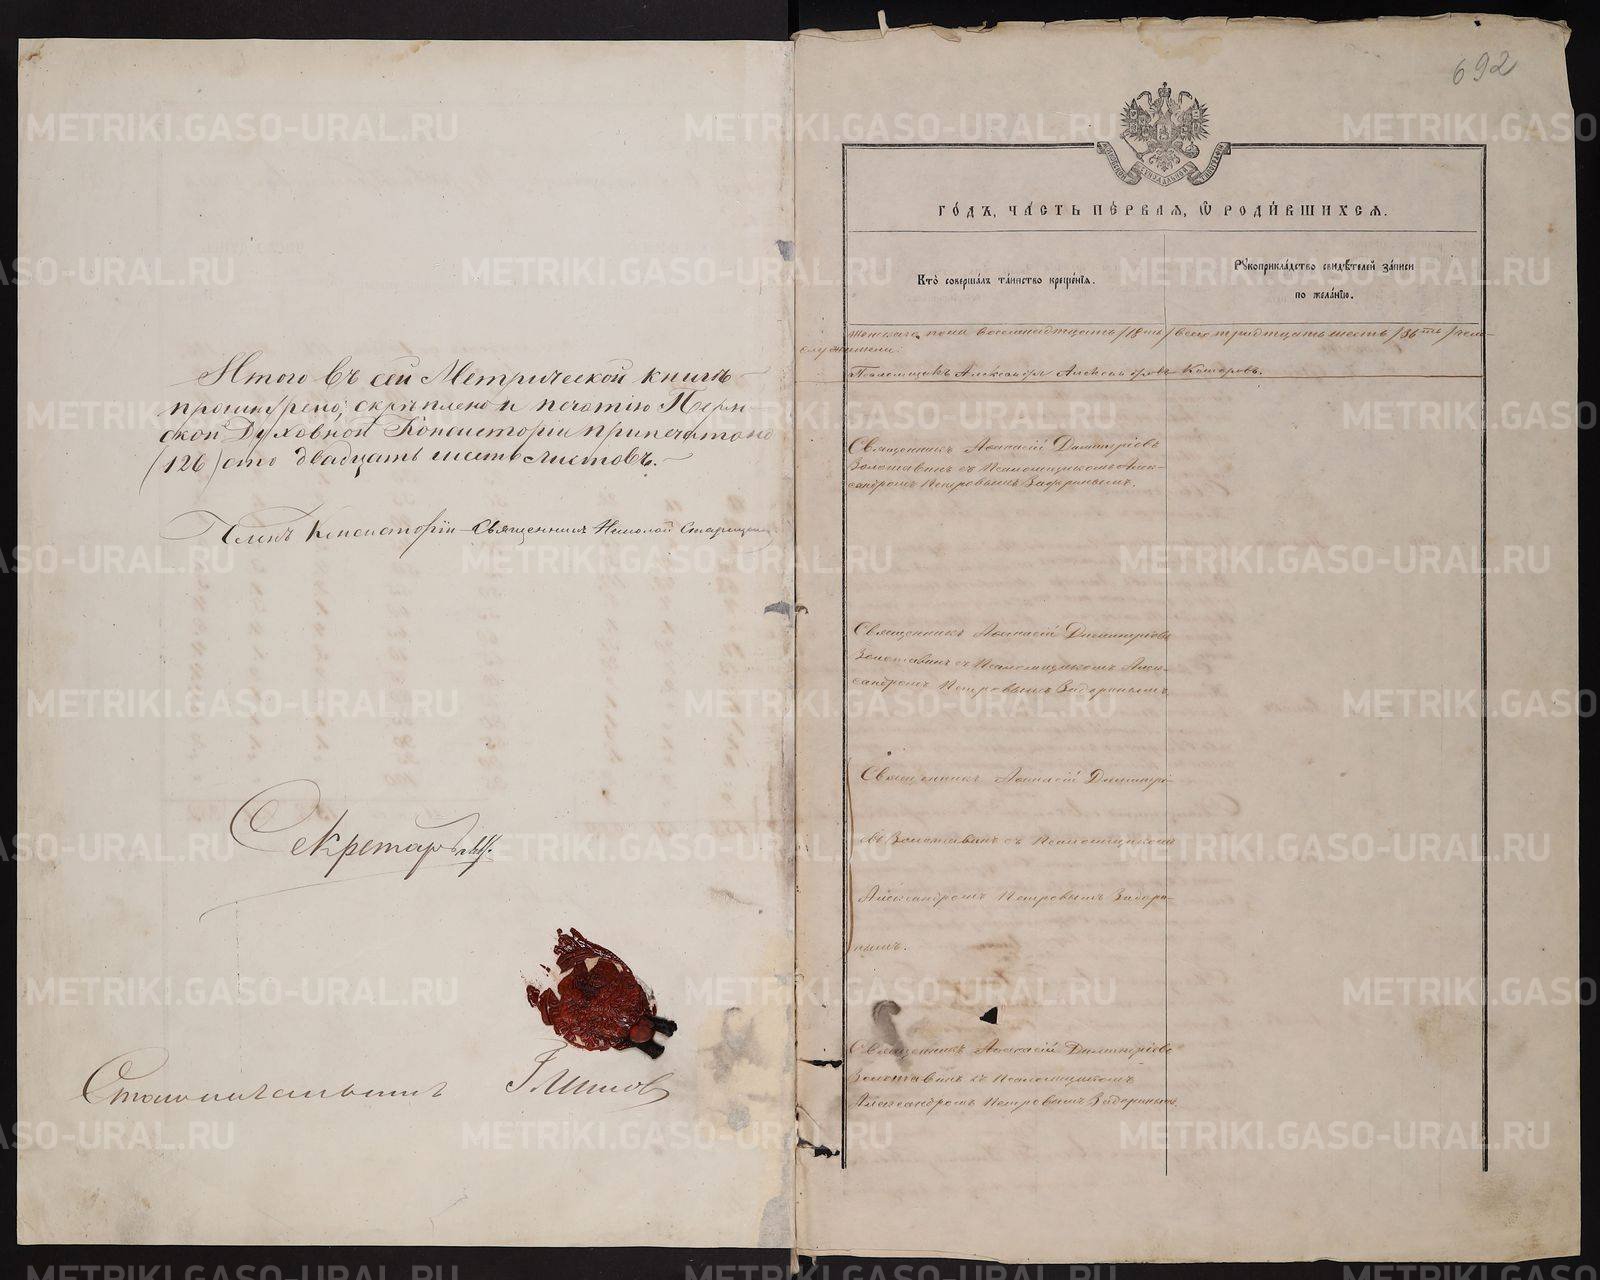 Итого въ сей Метрической книгѣ
прошнурено, скрѣплено и печатію Перм-
ской Духовной Консисторіи припечатано
(126) сто двадцать шесть листовъ.
Членъ Консисторіи Священникъ Николай
Секретарь
Столоначальникъ
692
МОСКОВСКОЙ СѴНОДАЛЬНОЙ ТИПОГРАФІИ
ГО́ДЪ, ЧА́СТЬ ПЕ́РВАЯ, Ѡ РОДИ́ВШИХСЯ.
Кто̀ соверша́лъ та́инство креще́нїѧ.
Рꙋкоприкла́дство свидѣ́телей за́писи
по жела́нїю.
женскаго пола восемнадцать /18ть/ всего тридцать шесть /36ть/
Псаломщикъ Александръ Александровъ
Священникъ Аѳанасій Димитріевъ
Золотавинъ съ Псаломщикомъ Алек-
сандромъ Петровымъ Задоринымъ.
Священникъ Аѳанасій Димитріевъ
Золотавинъ съ Псаломщикомъ Алек-
сандромъ Петровымъ Задоринымъ.
Священникъ Аѳанасій Димитрі-
евъ Золотавинъ съ Псаломщикомъ
Александромъ Петровымъ Задори-
нымъ.
Священникъ Аѳанасій Димитріевъ
Золотавинъ съ Псаломщикомъ
Александромъ Петровымъ Задоринымъ.
METRIKI.GASO-URAL.RU